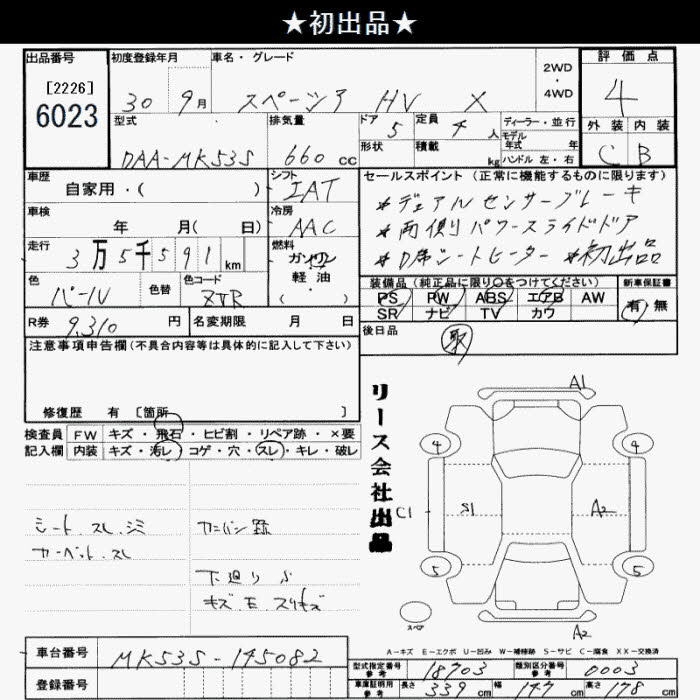 ★初出品★
出品番号 初度登録年月 車名・グレード 2WD・4WD 評価点
[2226]
6023
30 9月 スペーシア HV X 4
型式 排気量 ドア 5 定員 4人 ディーラー・並行 外装 内装
モデル年式 年
DAA-MK53S 660cc 形状 積載 kg ハンドル 左・右 C B
車歴 シフト セールスポイント(正常に機能するものに限ります)
自家用・( ) IAT *デュアルセンサーブレーキ
車検 冷房 *両側パワースライドドア
年 月( 日) AAC *D席シートヒーター *初出品
走行 燃料
3万5千591km ガソリン
軽油
・( )
色 色替 色コード 装備品(純正品に限り○をつけてください) 新車保証書
パール ZVR PS PW ABS エアB AW 有・無
SR ナビ TV カワ
R券 9,310円 名変期限 月 日 後日品 取
注意事項申告欄(不具合内容等は具体的に記入して下さい)
修復歴 有 [箇所 ]
検査員 FW キズ・飛石・ヒビ割・リペア跡・×要
記入欄 内装 キズ・汚レ・コゲ・穴・スレ・キレ・破レ
リース会社出品
A1
4 4
C1 S1 A2
5 5
スペア
A2
シート スレ シミ カンバン跡
カーペット スレ
下廻り
A-キズ E-エクボ U-凹み W-補修跡 S-サビ C-腐食 XX-交換済
車台番号 MK53S-145082
登録番号
型式指定番号 参考 18703 類別区分番号 参考 0003
車庫証明用 参考 長さ 339cm 幅 147cm 高さ 178cm